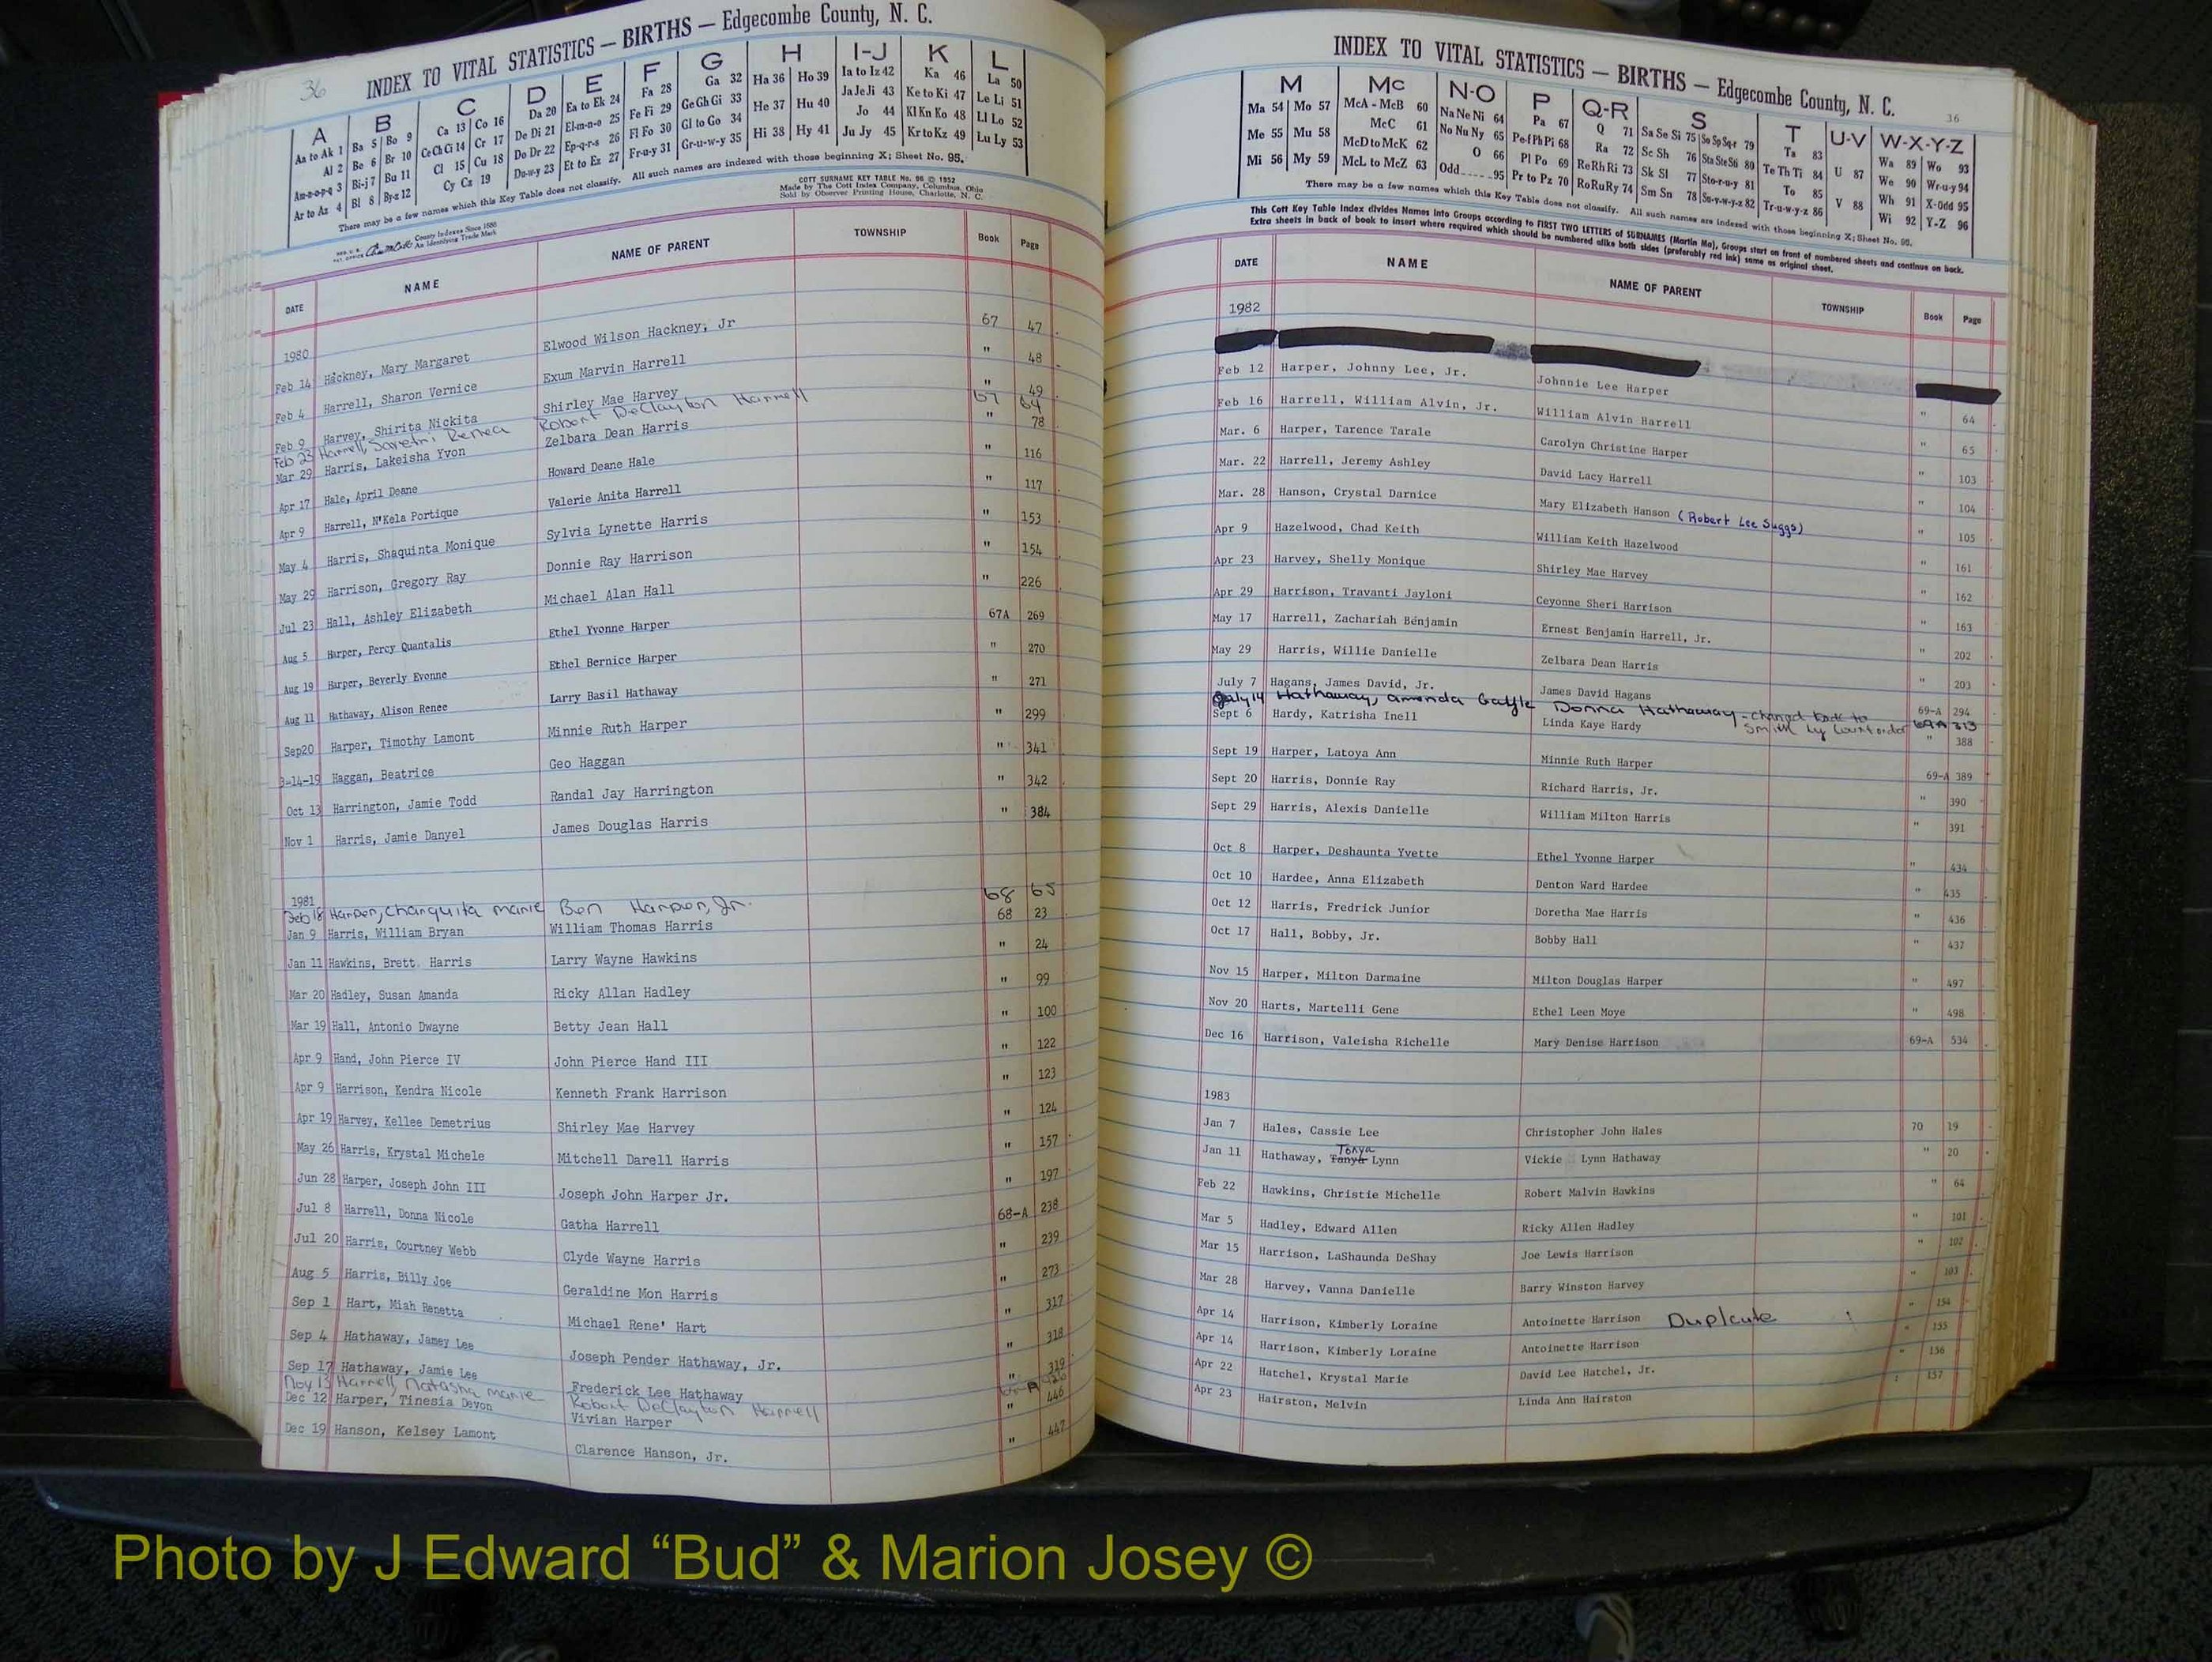 36
INDEX TO VITAL STATISTICS — BIRTHS — Edgecombe County, N. C.
A B C D E F G H I-J K L
Aa to Ak 1 Ba 5 Bo 9 Ca 13 Co 16 Da 20 Ea to Ek 24 Fa 28 Ga 32 Ha 36 Ho 39 Ia to Iz 42 Ka 46 La 50
Al 2 Be 6 Br 10 Ce Ch Ci 14 Cr 17 De Di 21 El-m-n-o 25 Fe Fi 29 Ge Gh Gi 33 He 37 Hu 40 Ja Je Ji 43 Ke to Ki 47 Le Li 51
Am-n-o-p-q 3 Bi-j 7 Bu 11 Cl 15 Cu 18 Do Dr 22 Ep-q-r-s 26 Fl Fo 30 Gl to Go 34 Hi 38 Hy 41 Jo 44 Kl Kn Ko 48 Ll Lo 52
Ar to Az 4 Bl 8 By-z 12 Cy Cz 19 Du-w-y 23 Et to Ez 27 Fr-u-y 31 Gr-u-w-y 35 Ju Jy 45 Kr to Kz 49 Lu Ly 53
There may be a few names which this Key Table does not classify. All such names are indexed with those beginning X; Sheet No. 95.
COTT SURNAME KEY TABLE No. 96 © 1952
Made by The Cott Index Company, Columbus, Ohio
Sold by Observer Printing House, Charlotte, N. C.
County Indexes Since 1888
An Identifying Trade Mark
DATE NAME NAME OF PARENT TOWNSHIP Book Page
1980
Feb 14 Hackney, Mary Margaret Elwood Wilson Hackney, Jr 67 47
Feb 4 Harrell, Sharon Vernice Exum Marvin Harrell " 48
Feb 9 Harvey, Shirita Nickita Shirley Mae Harvey " 49
Feb 23 Harrell, Renea Robert DeClayton Harrell 67 64
Mar 29 Harris, Lakeisha Yvon Zelbara Dean Harris " 78
Apr 17 Hale, April Deane Howard Deane Hale " 116
Apr 9 Harrell, N'Kela Portique Valerie Anita Harrell " 117
May 4 Harris, Shaquinta Monique Sylvia Lynette Harris " 153
May 29 Harrison, Gregory Ray Donnie Ray Harrison " 154
Jul 23 Hall, Ashley Elizabeth Michael Alan Hall " 226
Aug 5 Harper, Percy Quantalis Ethel Yvonne Harper 67A 269
Aug 19 Harper, Beverly Evonne Ethel Bernice Harper " 270
Aug 11 Hathaway, Alison Renee Larry Basil Hathaway " 271
Sep20 Harper, Timothy Lamont Minnie Ruth Harper " 299
3-14-19 Haggan, Beatrice Geo Haggan " 341
Oct 13 Harrington, Jamie Todd Randal Jay Harrington " 342
Nov 1 Harris, Jamie Danyel James Douglas Harris " 384
1981
Feb 18 Harper, Charquita marie Ben Harper, Jr. 68 65
Jan 9 Harris, William Bryan William Thomas Harris 68 23
Jan 11 Hawkins, Brett Harris Larry Wayne Hawkins " 24
Mar 20 Hadley, Susan Amanda Ricky Allan Hadley " 99
Mar 19 Hall, Antonio Dwayne Betty Jean Hall " 100
Apr 9 Hand, John Pierce IV John Pierce Hand III " 122
Apr 9 Harrison, Kendra Nicole Kenneth Frank Harrison " 123
Apr 19 Harvey, Kellee Demetrius Shirley Mae Harvey " 124
May 26 Harris, Krystal Michele Mitchell Darell Harris " 157
Jun 28 Harper, Joseph John III Joseph John Harper Jr. " 197
Jul 8 Harrell, Donna Nicole Gatha Harrell 68-A 238
Jul 20 Harris, Courtney Webb Clyde Wayne Harris " 239
Aug 5 Harris, Billy Joe Geraldine Mon Harris " 273
Sep 1 Hart, Miah Renetta Michael Rene' Hart " 317
Sep 4 Hathaway, Jamey Lee Joseph Pender Hathaway, Jr. " 318
Sep 17 Hathaway, Jamie Lee Frederick Lee Hathaway " 319
Nov 13 Harrell, Natasha marie Robert DeClayton Harrell
Dec 12 Harper, Tinesia Devon Vivian Harper " 446
Dec 19 Hanson, Kelsey Lamont Clarence Hanson, Jr. " 447
INDEX TO VITAL STATISTICS — BIRTHS — Edgecombe County, N. C.
36
M Mc N-O P Q-R S T U-V W-X-Y-Z
Ma 54 Mo 57 McA - McB 60 Na Ne Ni 64 Pa 67 Q 71 Sa Se Si 75 So Sp Sq-r 79 Ta 83 U 87 Wa 89 Wo 93
Me 55 Mu 58 McC 61 No Nu Ny 65 Pe-f Ph Pi 68 Ra 72 Sc Sh 76 Sta Ste Sti 80 Te Th Ti 84 V 88 We 90 Wr-u-y 94
Mi 56 My 59 McD to McK 62 O 66 Pl Po 69 Re Rh Ri 73 Sk Sl 77 Sto-r-u-y 81 To 85 Wh 91 X-Odd 95
McL to McZ 63 Odd 95 Pr to Pz 70 Ro Ru Ry 74 Sm Sn 78 Su-v-w-y-z 82 Tr-u-w-y-z 86 Wi 92 Y-Z 96
There may be a few names which this Key Table does not classify. All such names are indexed with those beginning X; Sheet No. 95.
This Cott Key Table Index divides Names into Groups according to FIRST TWO LETTERS of SURNAMES (Martin Ma), Groups start on front of numbered sheets and continue on back.
Extra sheets in back of book to insert where required which should be numbered alike both sides (preferably red ink) same as original sheet.
DATE NAME NAME OF PARENT TOWNSHIP Book Page
1982
Feb 12 Harper, Johnny Lee, Jr. Johnnie Lee Harper " 64
Feb 16 Harrell, William Alvin, Jr. William Alvin Harrell " 65
Mar. 6 Harper, Tarence Tarale Carolyn Christine Harper " 103
Mar. 22 Harrell, Jeremy Ashley David Lacy Harrell " 104
Mar. 28 Hanson, Crystal Darnice Mary Elizabeth Hanson (Robert Lee Suggs) " 105
Apr 9 Hazelwood, Chad Keith William Keith Hazelwood " 161
Apr 23 Harvey, Shelly Monique Shirley Mae Harvey " 162
Apr 29 Harrison, Travanti Jayloni Ceyonne Sheri Harrison " 163
May 17 Harrell, Zachariah Benjamin Ernest Benjamin Harrell, Jr. " 202
May 29 Harris, Willie Danielle Zelbara Dean Harris " 203
July 7 Hagans, James David, Jr. James David Hagans 69-A 294
July 14 Hathaway, Amanda Gayle Donna Hathaway - changed back to Smith by Court order 69A 313
Sept 6 Hardy, Katrisha Inell Linda Kaye Hardy " 388
Sept 19 Harper, Latoya Ann Minnie Ruth Harper 69-A 389
Sept 20 Harris, Donnie Ray Richard Harris, Jr. " 390
Sept 29 Harris, Alexis Danielle William Milton Harris " 391
Oct 8 Harper, Deshaunta Yvette Ethel Yvonne Harper " 434
Oct 10 Hardee, Anna Elizabeth Denton Ward Hardee " 435
Oct 12 Harris, Fredrick Junior Doretha Mae Harris " 436
Oct 17 Hall, Bobby, Jr. Bobby Hall " 437
Nov 15 Harper, Milton Darmaine Milton Douglas Harper " 497
Nov 20 Harts, Martelli Gene Ethel Leen Moye " 498
Dec 16 Harrison, Valeisha Richelle Mary Denise Harrison 69-A 534
1983
Jan 7 Hales, Cassie Lee Christopher John Hales 70 19
Tonya
Jan 11 Hathaway, Tanya Lynn Vickie Lynn Hathaway " 20
Feb 22 Hawkins, Christie Michelle Robert Malvin Hawkins " 64
Mar 5 Hadley, Edward Allen Ricky Allen Hadley " 101
Mar 15 Harrison, LaShaunda DeShay Joe Lewis Harrison " 102
Mar 28 Harvey, Vanna Danielle Barry Winston Harvey " 103
Apr 14 Harrison, Kimberly Loraine Antoinette Harrison Duplcute " 154
Apr 14 Harrison, Kimberly Loraine Antoinette Harrison " 155
Apr 22 Hatchel, Krystal Marie David Lee Hatchel, Jr. " 156
Apr 23 Hairston, Melvin Linda Ann Hairston " 157
Photo by J Edward “Bud” & Marion Josey ©